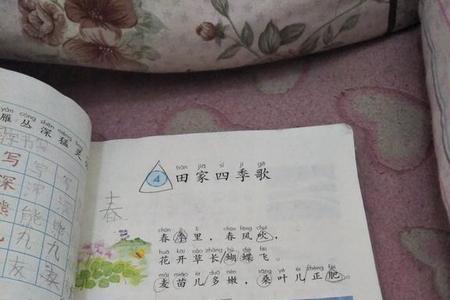 yàn cóng shēn měng
雁丛深猛灵
写字
深
熊熊
九九
友家
tián jiā sì jì gē
4 田家四季歌
春
chūn jì lǐ chūn fēng chuī
春季里，春风吹，
huā kāi cǎo zhǎng hú dié fēi
花开草长蝴蝶飞。
mài miáo ér duō nèn sāng yè ér zhèng féi
麦苗儿多嫩，桑叶儿正肥。